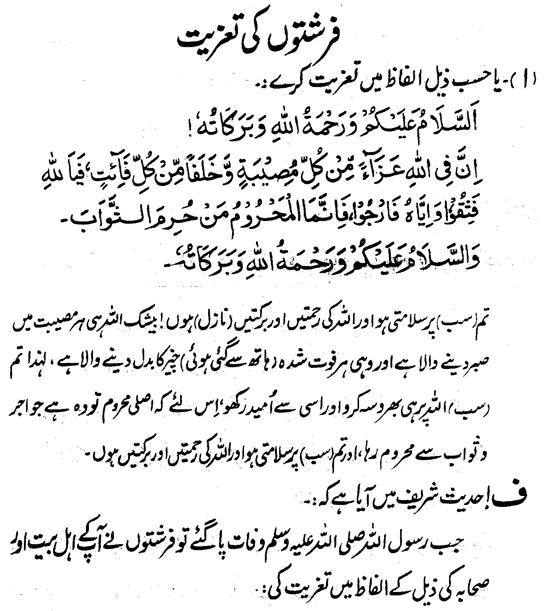 فرشتوں کی تعزیت
(۱)۔ یا حسب ذیل الفاظ میں تعزیت کرے :۔
اَلسَّلَامُ عَلَيْكُمْ وَرَحْمَةُ اللهِ وَبَرَكَاتُهٗ!
اِنَّ فِی اللهِ عَزَآءً مِّنْ كُلِّ مُصِيْبَةٍ وَّخَلَفًا مِّنْ كُلِّ فَآئِتٍ، فَبِاللهِ
فَثِقُوْا وَاِيَّاهُ فَارْجُوْا، فَاِنَّمَا الْمَحْرُوْمُ مَنْ حُرِمَ الثَّوَابَ۔
وَالسَّلَامُ عَلَيْكُمْ وَرَحْمَةُ اللهِ وَبَرَكَاتُهٗ۔
تم (سب) پر سلامتی ہو اور اللہ کی رحمتیں اور برکتیں (نازل) ہوں! بیشک اللہ ہی ہر مصیبت میں
صبر دینے والا ہے اور وہی ہر فوت شدہ (ہاتھ سے گئی ہوئی) چیز کا بدل دینے والا ہے، لہٰذا تم
(سب) اللہ پر ہی بھروسہ کرو اور اسی سے اُمید رکھو، اِس لئے کہ اصلی محروم تو وہ ہے جو اجر
و ثواب سے محروم رہا، اور تم (سب) پر سلامتی ہو اور اللہ کی رحمتیں اور برکتیں ہوں۔
ف! حدیث شریف میں آیا ہے کہ :۔
جب رسول اللہ صلی اللہ علیہ وسلم وفات پا گئے تو فرشتوں نے آپ کے اہل بیت اور
صحابہ کی ذیل کے الفاظ میں تعزیت کی :